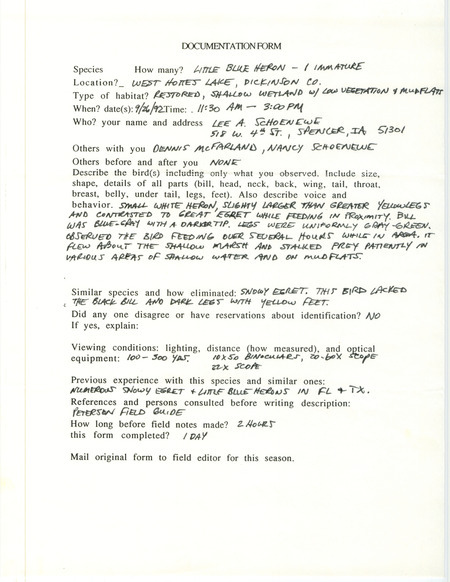 DOCUMENTATION FORM
Species How many? LITTLE BLUE HERON - 1 IMMATURE
Location? WEST HOTTES LAKE, DICKINSON CO.
Type of habitat? RESTORED, SHALLOW WETLAND W/ LOW VEGETATION & MUDFLATS
When? date(s): 9/26/92 Time: 11:30 AM - 3:00 PM
Who? your name and address LEE A. SCHOENEWE
515 W. 4th ST., SPENCER, IA 51301
Others with you DENNIS McFARLAND, NANCY SCHOENEWE
Others before and after you NONE
Describe the bird(s) including only what you observed. Include size,
shape, details of all parts (bill, head, neck, back, wing, tail, throat,
breast, belly, under tail, legs, feet). Also describe voice and
behavior. SMALL WHITE HERON, SLIGHTLY LARGER THAN GREATER YELLOWLEGS
AND CONTRASTED TO GREAT EGRET WHILE FEEDING IN PROXIMITY. BILL
WAS BLUE-GRAY WITH A DARKER TIP. LEGS WERE UNIFORMLY GRAY-GREEN.
OBSERVED THE BIRD FEEDING OVER SEVERAL HOURS WHILE IN AREA. IT
FLEW ABOUT THE SHALLOW MARSH AND STALKED PREY PATIENTLY IN
VARIOUS AREAS OF SHALLOW WATER AND ON MUDFLATS.
Similar species and how eliminated: SNOWY EGRET. THIS BIRD LACKED
THE BLACK BILL AND DARK LEGS WITH YELLOW FEET.
Did any one disagree or have reservations about identification? NO
If yes, explain:
Viewing conditions: lighting, distance (how measured), and optical
equipment: 100-300 YDS. 10X50 BINOCULARS, 20-60X SCOPE
22X SCOPE
Previous experience with this species and similar ones:
NUMEROUS SNOWY EGRET & LITTLE BLUE HERONS IN FL & TX.
References and persons consulted before writing description:
PETERSON FIELD GUIDE
How long before field notes made? 2 HOURS
this form completed? 1 DAY
Mail original form to field editor for this season.